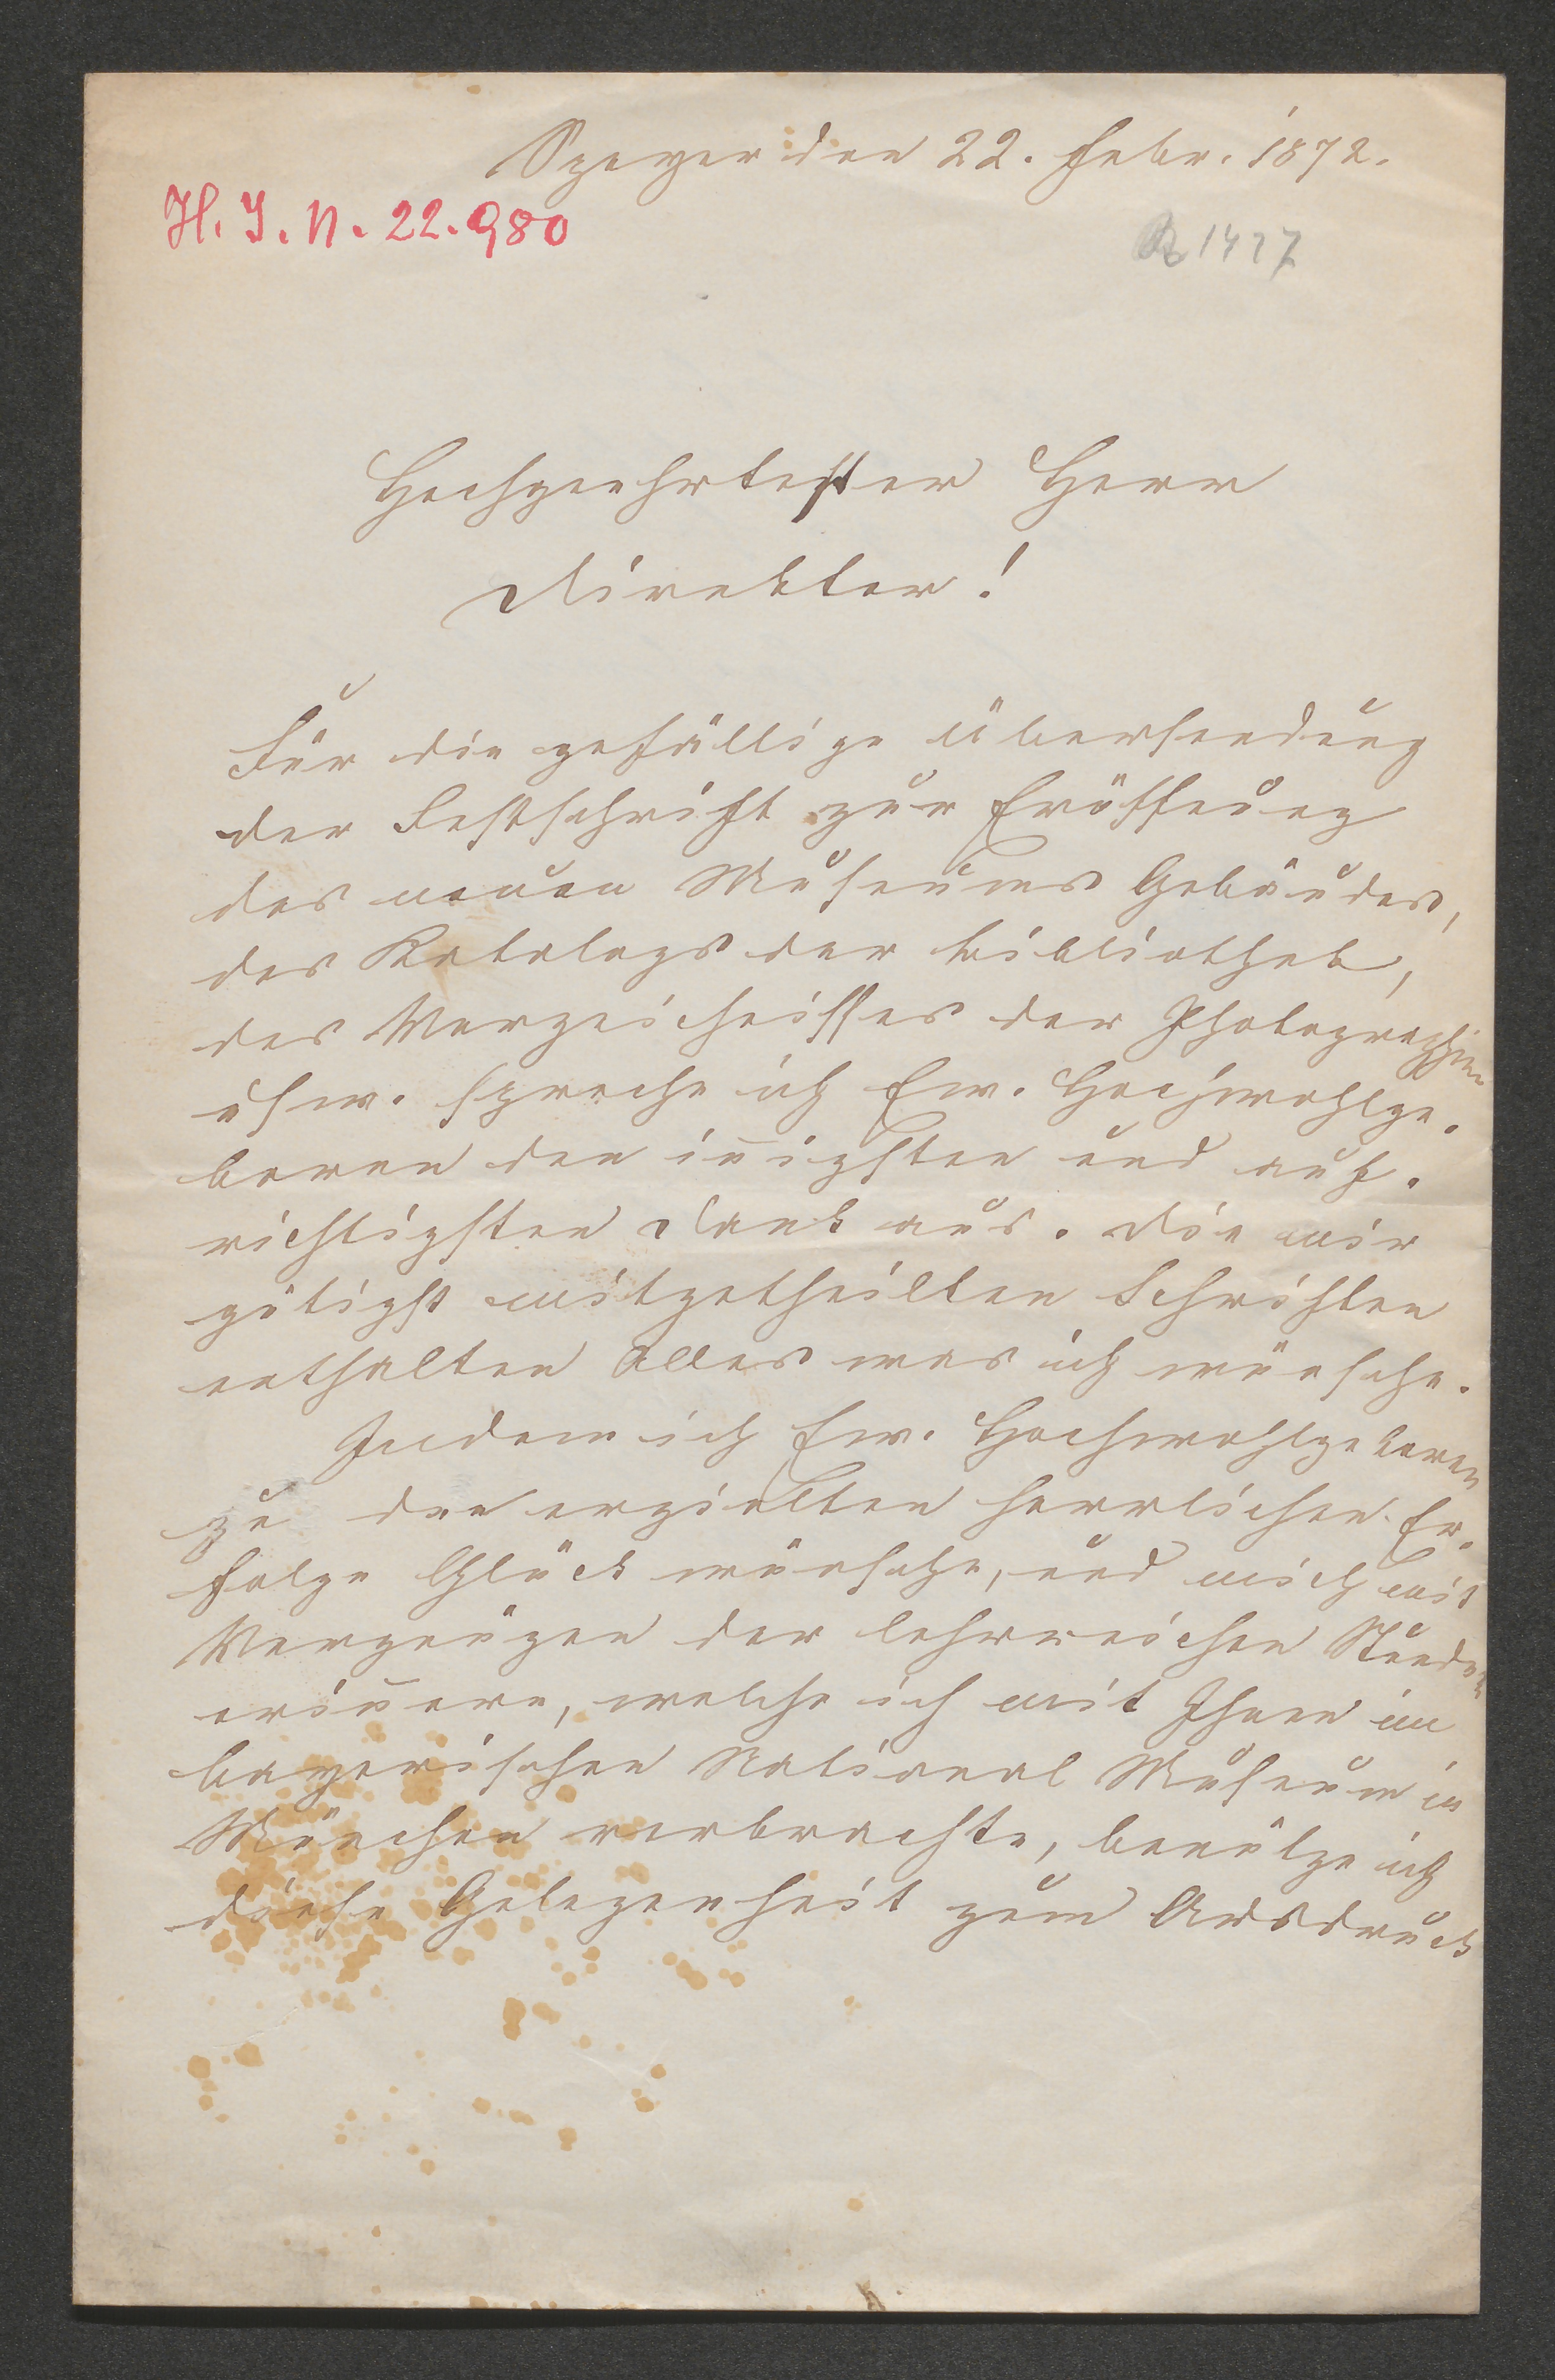 Speyer den 22. Febr. 1872.
H. I. N. 22.980
1427
Hochgeehrtester Herr
Direktor!
Für die gefällige Übersendung
der Festschrift zur Eröffnung
des neuen Museums Gebäudes,
des Katalogs der Bibliothek,
des Verzeichnisses der Photographien
usw. spreche ich Ew. Hochwohlge-
boren den in̅igsten und auf-
richtigsten Dank aus. Die mir
gütigst mitgetheilten Schriften
enthalten Alles was ich wünsche.
Indem ich Ew. Hochwohlgeboren
zu den erzielten herrlichen Er-
folge Glück wünsche, und mich mit
Vergnügen der lehrreichen Stunden
erin̅ere, welche ich mit Ihnen im
bayerischen National Museum in
München verbrachte, benütze ich
diese Gelegenheit zum Ausdruck